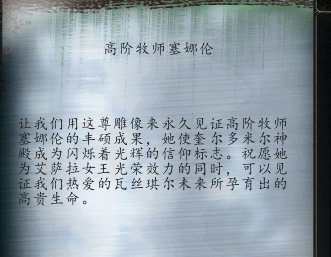 高阶牧师塞娜伦
让我们用这尊雕像来永久见证高阶牧师
塞娜伦的丰硕成果，她使奎尔多米尔神
殿成为闪烁着光辉的信仰标志。祝愿她
为艾萨拉女王光荣效力的同时，可以见
证我们热爱的瓦丝琪尔未来所孕育出的
高贵生命。